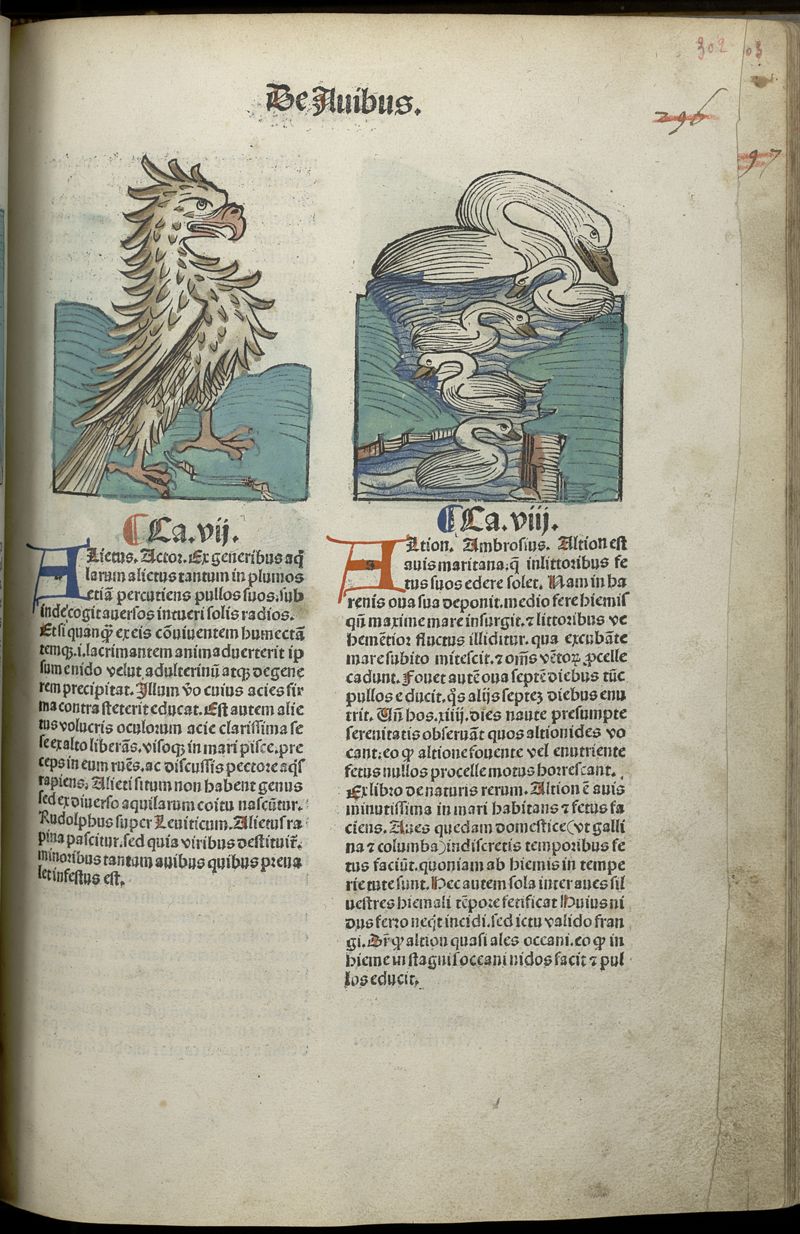 302
03
De Auibus.
296
97
Ca.vij.
ALietus. Actor. Ex generibus aq̄
larum alietus tantum in plumos
etiā percutiens pullos suos. sub
inde cogit aversos intueri solis radios.
Et si quanq̄ ex eis cōniuentem humectā
temq̄.i. lacrimantem animaduerterit ip
sum e nido velut adulterinū atq̄ degene
rem precipitat. Illum v̄o cuius acies fir
ma contra steterit educat. Est autem alie
tus volucris oculorum acie clarissima se
se ex alto liberās. visoq̄ in mari pisce. pre
ceps in eum ruēs. ac discussis pectore aq̄s
rapiens. Alieti situm non habent genus
sed ex diuerso aquilarum coitu nascūtur.
Rudolphus super Leuiticum. Alietus ra
pina pascitur. sed quia viribus destituit̄.
minoribus tantum auibus quibus preua
let infestus est.
Ca.viij.
ALtion. Ambrosius. Altion est
auis maritana. q̄ in littoribus fe
tus suos edere solet. Nam in ha
renis oua sua deponit. medio fere hiemis
qū maxime mare insurgit. ⁊ littoribus ve
hementior fluctus illiditur. qua excubāte
mare subito mitescit. ⁊ om̄s vētoꝝ ꝓcelle
cadunt. Fouet autē oua septē diebus tūc
pullos educit. q̄s alijs septeꝫ diebus enu
trit. Un̄ hos .xiiij. dies naute presumpte
serenitatis obseruāt quos altionides vo
cant. eo ꝙ altione fouente vel enutriente
fetus nullos procelle motus horrescant.
Ex libro de naturis rerum. Altion ē auis
minutissima in mari habitans ⁊ fetus fa
ciens. Aues quedam domestice (vt galli
na ⁊ columba) indiscretis temporibus fe
tus faciūt. quoniam ab hiemis in tempe
rie tute sunt. Hec autem sola inter aues sil
uestres hiemali tēpore fetificat Huius ni
dus ferro neq̄t incidi. sed ictu valido fran
gi. Dr̄ ꝙ altion quasi ales occani. eo ꝙ in
hieme in stagnis occani nidos facit ⁊ pul
los educit.